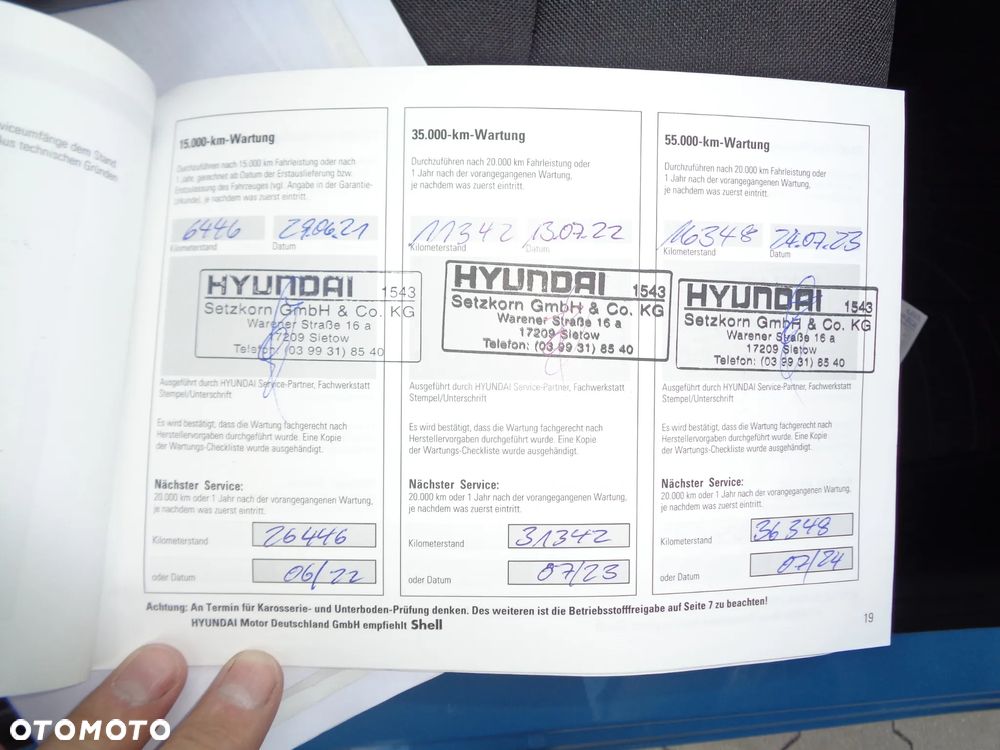 viceumfänge dem Stand
Aus technischen Gründen
15.000-km-Wartung
Durchzuführen nach 15.000 km Fahrleistung oder nach
1 Jahr, gerechnet ab Datum der Erstauslieferung bzw.
Erstzulassung des Fahrzeuges (vgl. Angabe in der Garantie-
urkunde), je nachdem was zuerst eintritt.
6446 29.06.21
Kilometerstand Datum
HYUNDAI 1543
Setzkorn GmbH & Co. KG
Warener Straße 16 a
17209 Sietow
Telefon: (03 99 31) 85 40
Ausgeführt durch HYUNDAI Service-Partner, Fachwerkstatt
Stempel/Unterschrift
Es wird bestätigt, dass die Wartung fachgerecht nach
Herstellervorgaben durchgeführt wurde. Eine Kopie
der Wartungs-Checkliste wurde ausgehändigt.
Nächster Service:
20.000 km oder 1 Jahr nach der vorangegangenen Wartung,
je nachdem was zuerst eintritt.
Kilometerstand 26446
oder Datum 06/22
35.000-km-Wartung
Durchzuführen nach 20.000 km Fahrleistung oder
1 Jahr nach der vorangegangenen Wartung,
je nachdem was zuerst eintritt.
11342 13.07.22
Kilometerstand Datum
HYUNDAI 1543
Setzkorn GmbH & Co. KG
Warener Straße 16 a
17209 Sietow
Telefon: (03 99 31) 85 40
Ausgeführt durch HYUNDAI Service-Partner, Fachwerkstatt
Stempel/Unterschrift
Es wird bestätigt, dass die Wartung fachgerecht nach
Herstellervorgaben durchgeführt wurde. Eine Kopie
der Wartungs-Checkliste wurde ausgehändigt.
Nächster Service:
20.000 km oder 1 Jahr nach der vorangegangenen Wartung,
je nachdem was zuerst eintritt.
Kilometerstand 31342
oder Datum 07/23
55.000-km-Wartung
Durchzuführen nach 20.000 km Fahrleistung oder
1 Jahr nach der vorangegangenen Wartung,
je nachdem was zuerst eintritt.
16348 24.07.23
Kilometerstand Datum
HYUNDAI 1543
Setzkorn GmbH & Co. KG
Warener Straße 16 a
17209 Sietow
Telefon: (03 99 31) 85 40
Ausgeführt durch HYUNDAI Service-Partner, Fachwerkstatt
Stempel/Unterschrift
Es wird bestätigt, dass die Wartung fachgerecht nach
Herstellervorgaben durchgeführt wurde. Eine Kopie
der Wartungs-Checkliste wurde ausgehändigt.
Nächster Service:
20.000 km oder 1 Jahr nach der vorangegangenen Wartung,
je nachdem was zuerst eintritt.
Kilometerstand 36348
oder Datum 07/24
Achtung: An Termin für Karosserie- und Unterboden-Prüfung denken. Des weiteren ist die Betriebsstofffreigabe auf Seite 7 zu beachten!
HYUNDAI Motor Deutschland GmbH empfiehlt Shell
19
OTOMOTO